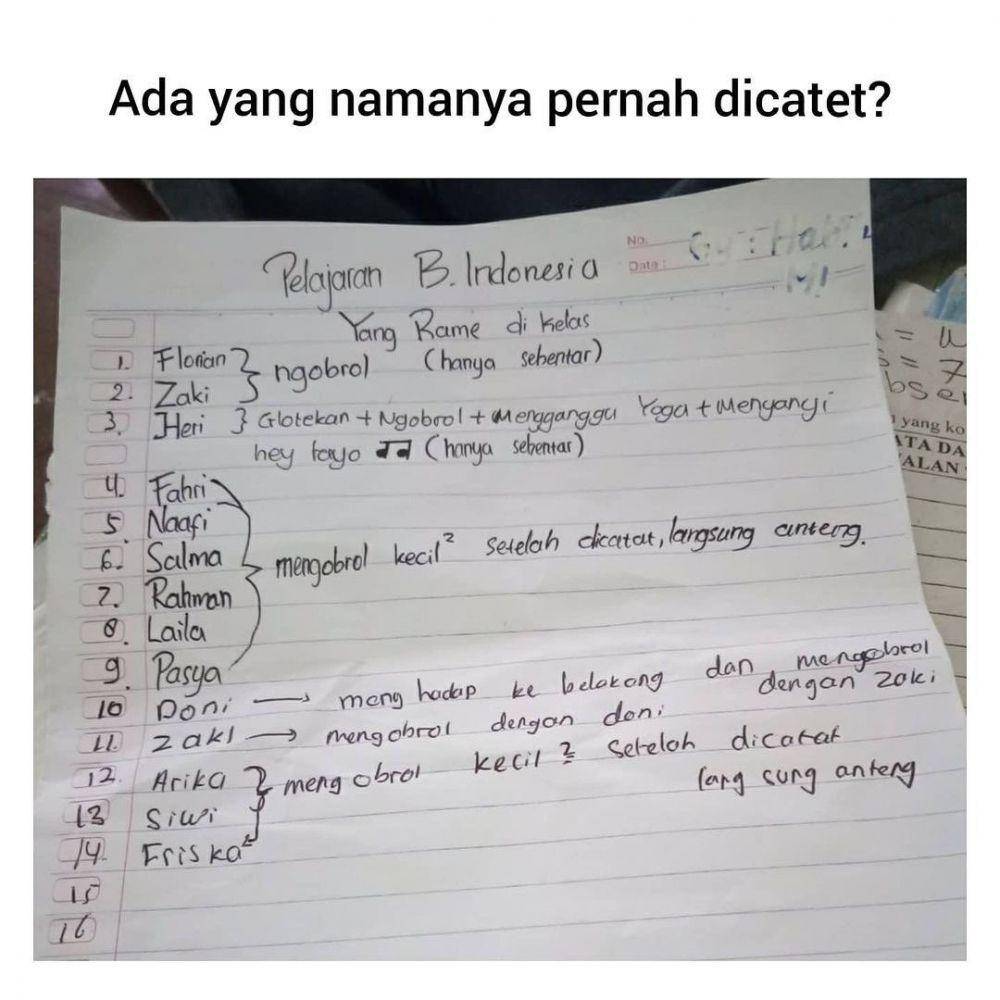 Ada yang namanya pernah dicatet?
No.
Date:
Pelajaran B. Indonesia
Yang Rame di kelas
1. Florian } ngobrol (hanya sebentar)
2. Zaki
3. Heri } Glotekan + Ngobrol + Mengganggu Yoga + Menyanyi
hey tayo (hanya sebentar)
4. Fahri
5. Naafi
6. Salma } mengobrol kecil² setelah dicatat, langsung anteng.
7. Rahman
8. Laila
9. Pasya
10 Doni → menghadap ke belakang dan mengobrol
dengan zaki
11. zaki → mengobrol dengan doni
12. Arika } mengobrol kecil² setelah dicatat
langsung anteng
13 Siwi
14. Friska
15
16
= 7
yang ko
ATA DA
ALAN